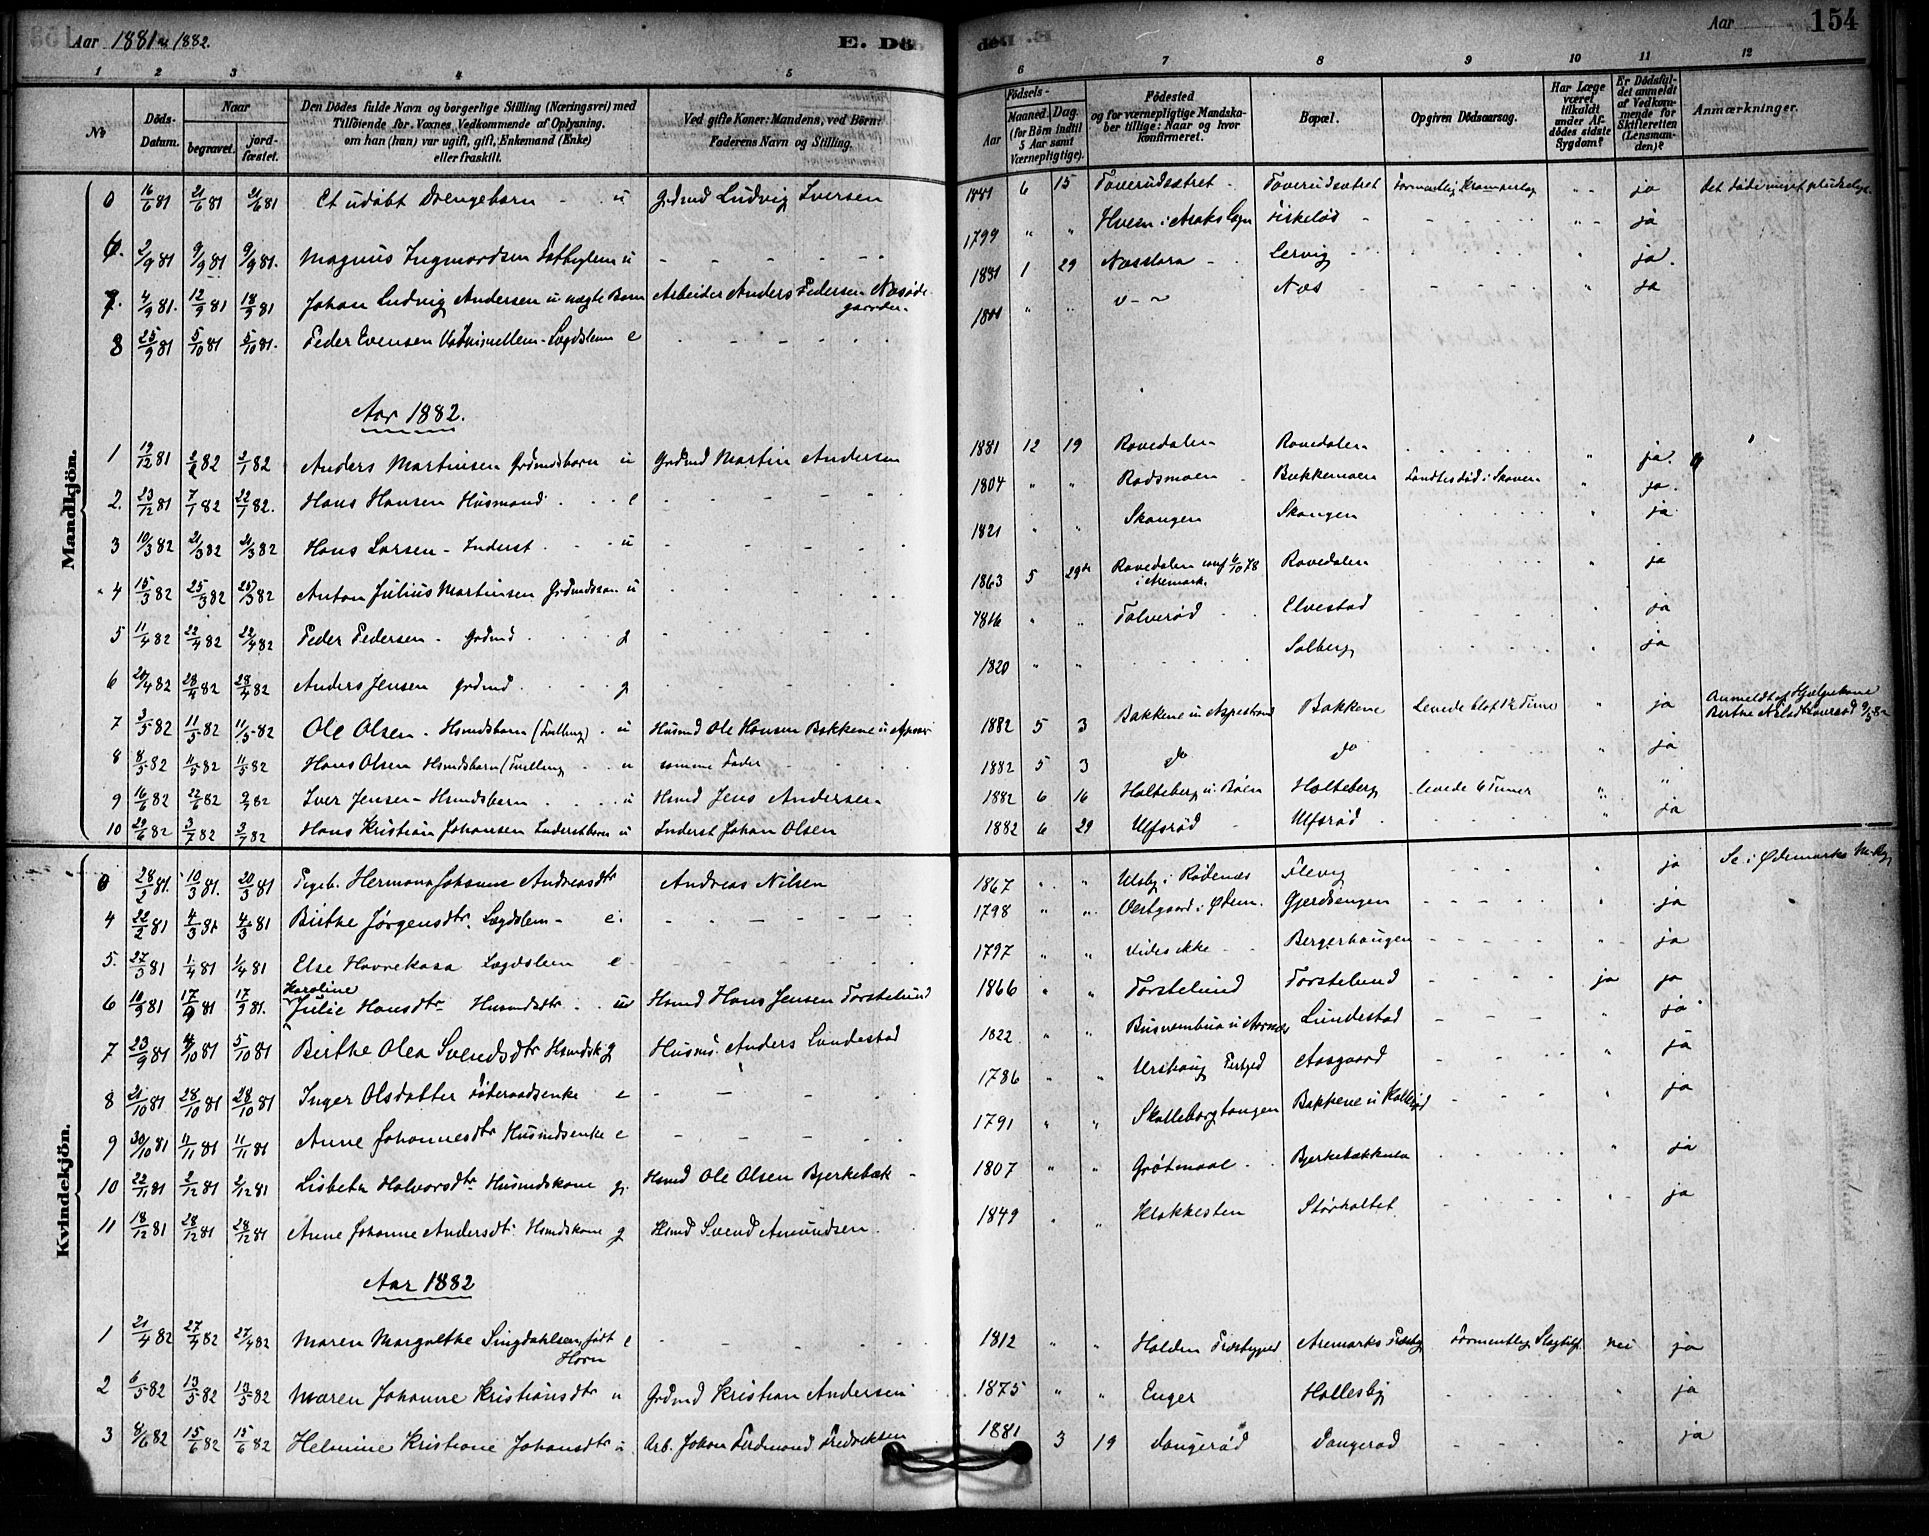 Aar 1881 & 1882.
E. Död
E. Död
Aar
154
1 2 3 4 5 6 7 8 9 10 11 12
No
Döds-Datum.
Naar
begravet.
jord-fæstet.
Den Dödes fulde Navn og borgerlige Stilling (Næringsvei) med
Tilföiende for Voxnes Vedkommende af Oplysning,
om han (hun) var ugift, gift, Enkemand (Enke)
eller fraskilt.
Ved gifte Koner: Mandens, ved Börn:
Faderens Navn og Stilling.
Födsels-
Aar
Maaned. Dag.
(for Börn indtil
5 Aar samt
Værnepligtige).
Födested
og for værnepligtige Mandska-
ber tillige: Naar og hvor
konfirmeret.
Bopæl.
Opgiven Dödsaarsag.
Har Læge
været
tilkaldt
under Af-
dödes sidste
Sygdom?
Er Dödsfal-
det anmeldt
af Vedkom-
mende for
Skifteretten
(Lensman-
den)?
Anmærkninger.
Mandkjön.
0 16/6 81 21/6 81 21/6 81 Et udøbt Drengebarn u Grdmd Ludvig Iversen 1881 6 15 ja
6. 2/9 81 9/9 81 9/9 81. Magnus Ingmordsen u 1799 " " ja
7. 4/9 81. 12/9 81 18/9 81 Johan Ludvig Andersen u ægte Barn Arbeider Anders Pedersen 1881 1 29 Lervig ja.
8 25/9 81 5/10 81 5/10 81. Peder Evensen Lægdslem e 1801 " " Næs ja
Aar 1882.
1 19/12 81 2/1 82 2/1 82 Anders Martinsen Grdmdsbarn u Grdmd Martin Andersen 1881 12 19 Rovedalen Rovedalen ja.
2. 23/12 81 7/1 82 22/1 82. Hans Hansen Husmand e 1804 " " Rødsmoen Bakkemoen Fandtes død i Skoven ja.
3 10/3 82 21/3 82 21/3 82 Hans Larsen - Inderst u 1821 " " Skaugen Skaugen ja
4 15/3 82 25/3 82 25/3 82 Anton Julius Martinsen Grdmdssøn u 1863 5 29 Rovedalen conf 6/10 78 i Aremark. Rovedalen ja
5 11/4 82 22/4 82 22/4 82 Peder Pedersen - Grdmd g 1816 " " Tolverød Elvestad ja
6 20/4 82 28/4 82 28/4 82 Anders Jensen Grdmd g 1820 " " Solberg ja
7 3/5 82 11/5 82 11/5 82 Ole Olsen - Hsmdsbarn (Tvilling) u Husmd Ole Hansen Bakkene 1882 5 3 Bakkene Bakkene Levede blot 12 Timer ja Anmeldt af Hjælpekone
8 8/5 82 11/5 82 11/5 82 Hans Olsen Hsmdsbarn (Tvilling u samme Fader 1882 5 3 do do ja
9 16/6 82 22/6 82 2/7 82 Iver Jensen - Hsmdsbarn u Hsmd Jens Andersen 1882 6 16 Holteberg u. Bøen Holteberg levede 6 Timer "
10 29/6 82 3/7 82 3/7 82 Hans Kristian Johansen Inderstbarn u Inderst Johan Olsen 1882 6 29 Ulfsrød Ulfsrød ja
Kvindekjön.
0 28/2 81. 10/3 81. 20/3 81 Pigeb. Hermana Johanne Andreasdtr Andreas Nilsen 1867 " " Ulsby i Rødenæs Flevig ja Se i Ødemarks M.
4 22/2 81 4/3 81 4/3 81 Birthe Jørgensdtr. Lægdslem - e. 1798 " " Vestgaard i Ødem. Gjerdsengen ja
5. 27/3 81 1/4 81 1/4 81 Else Havrekasa Lægdslem e 1797 " " vides ikke Bergerhaugen ja
6 10/9 81 17/9 81 17/9 81. Karoline Julie Hansdtr Husmdsdtr. u Hsmd Hans Jensen Torstelund 1866 " " Torstelund Torstelund ja ja
7 23/9 81 4/10 81 5/10 81 Birthe Olea Svendsdtr Hsmdsk g Husmd. Anders Lundestad 1822 " " Lundestad ja
8 21/10 81 28/10 81 28/10 81 Inger Olsdatter e 1786 " " Aasgaard ja
9 30/10 81 11/11 81 11/11 81 Anne Johannesdtr Husmdsenke e 1791 " " Skolleborgtangen Bakkene u Kollerød ja
10 22/11 81 2/12 81 2/12 81 Lisbeth Halvorsdtr Husmdskone g. Hsmd Ole Olsen Bjerkebæk 1807 " " Grøtmaal Bjerkebækken ja
11 18/12 81 28/12 81 28/12 81 Anne Johanne Andersdtr. Hsmdskone g Hsmd Svend Amundsen. 1849 " " Klokkesten Storholtet ja
Aar 1882
1 21/4 82 27/4 82 27/4 82 Maren Margrethe Singdahlsen født Horn e 1812 " " Halden Præstegjeld Aremarks Prstg. Formentlig Slagtilf. nei ja
2 6/5 82 13/5 82 13/5 82 Maren Johanne Kristiansdtr u Grdmd Kristian Andersen 1875 " " Enger Hallesby ja
3 8/6 82 15/6 82 15/6 82 Helmine Kristiane Johansdtr u Arb. Johan Ferdinand Fredriksen 1881 3 19 Daugerød Daugerød ja